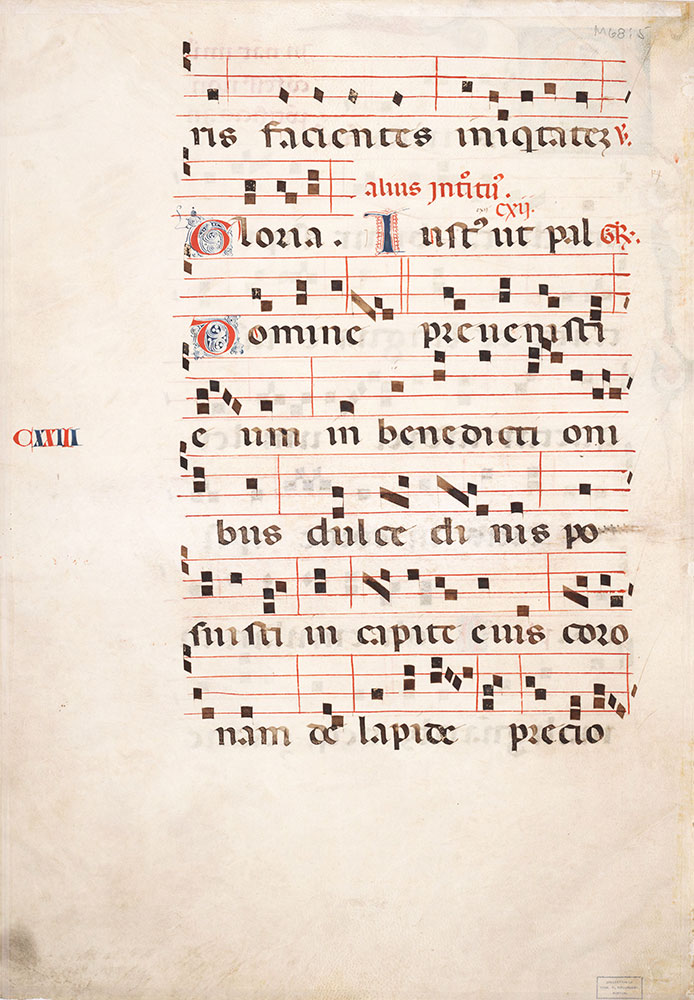 M681 S
ris facientes iniqtatez V.
alius intoitu.
cxij.
Gloria. Iust' ut pal GR.
Domine prevenisti
e um in benedicti oni
CXXIII
bus dulce di nis po
suisti in capite eius coro
nam de lapide precio